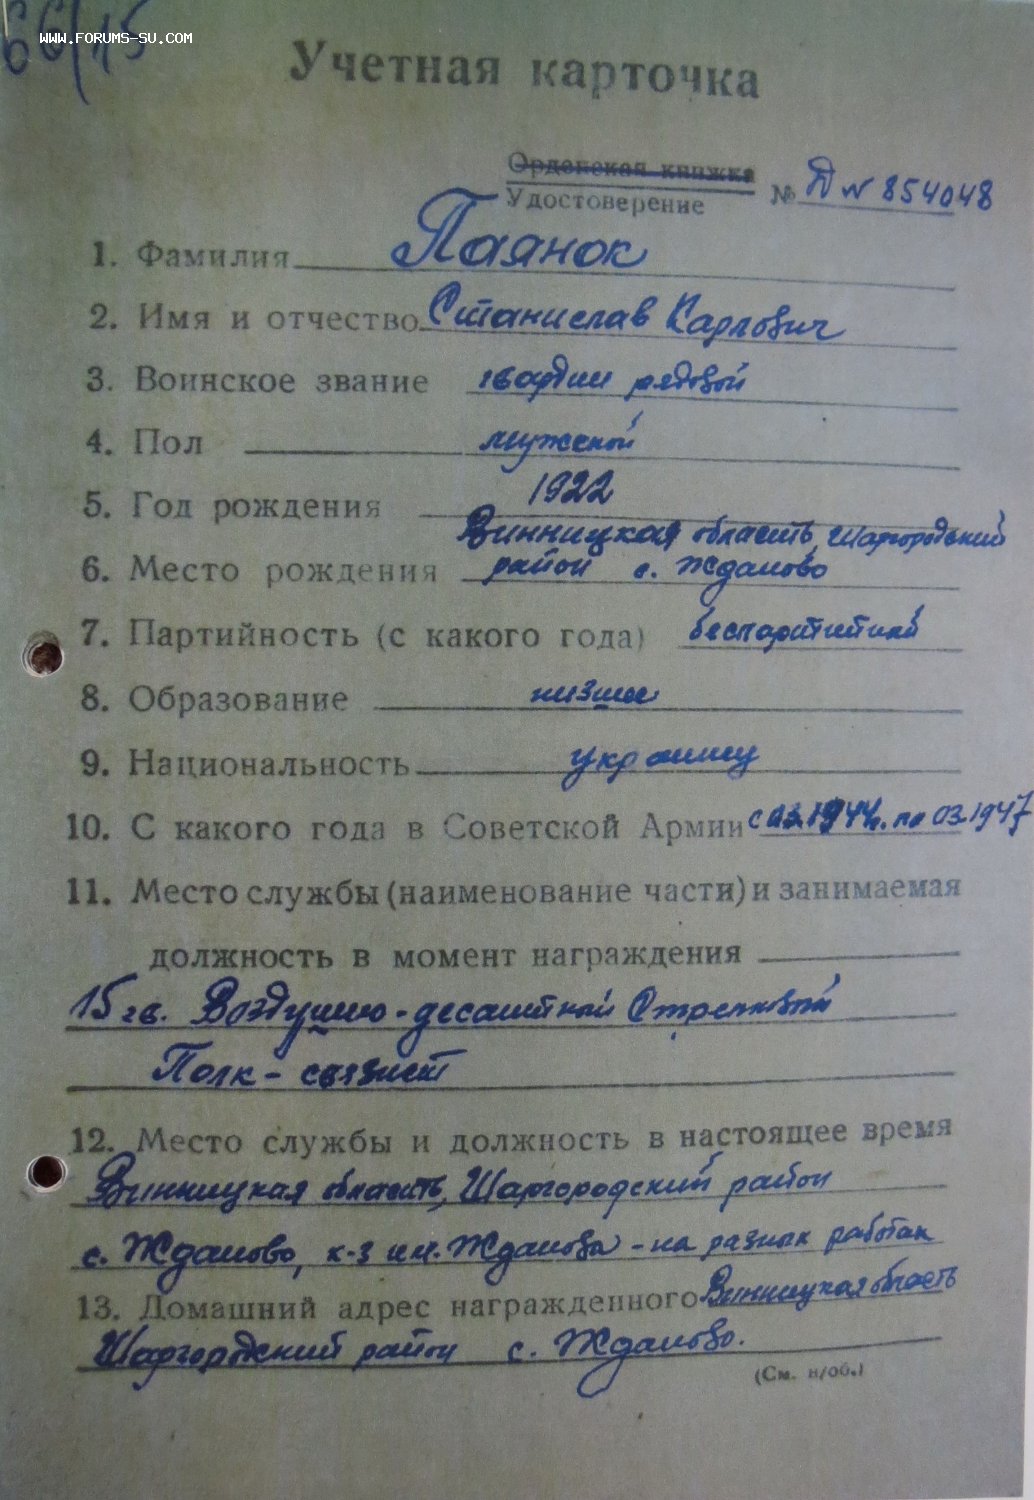 66/15
WWW.FORUMS-SU.COM
Учетная карточка
Орденская книжка
Удостоверение № Д № 854048
1. Фамилия Паянок
2. Имя и отчество Станислав Карлович
3. Воинское звание гвардии рядовой
4. Пол мужской
5. Год рождения 1922
Винницкая область, Шаргородский
6. Место рождения район с. Жданово
7. Партийность (с какого года) беспартийный
8. Образование низшее
9. Национальность украинец
10. С какого года в Советской Армии с 03.1944г. по 03.1947
11. Место службы (наименование части) и занимаемая
должность в момент награждения
15 гв. Воздушно-десантной Стрелковый
Полк - связист
12. Место службы и должность в настоящее время
Винницкая область, Шаргородский район
с. Жданово, к-з им. Жданова - на разных работах
13. Домашний адрес награжденного Винницкая область
Шаргородский район с. Жданово.
(См. н/об.)